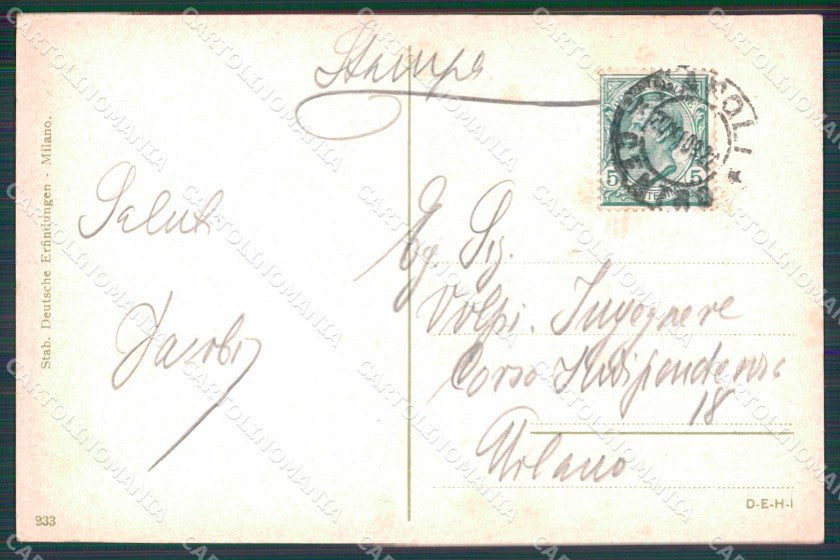 Stampa
NAPOLI
5 5
Saluti
Jacoby
Eg. Sig.
Volpi. Ingegnere
Corso Indipendenza
18
Milano
Stab. Deutsche Erfindungen - Milano.
233
D-E-H-I
CARTOLINOMANIA